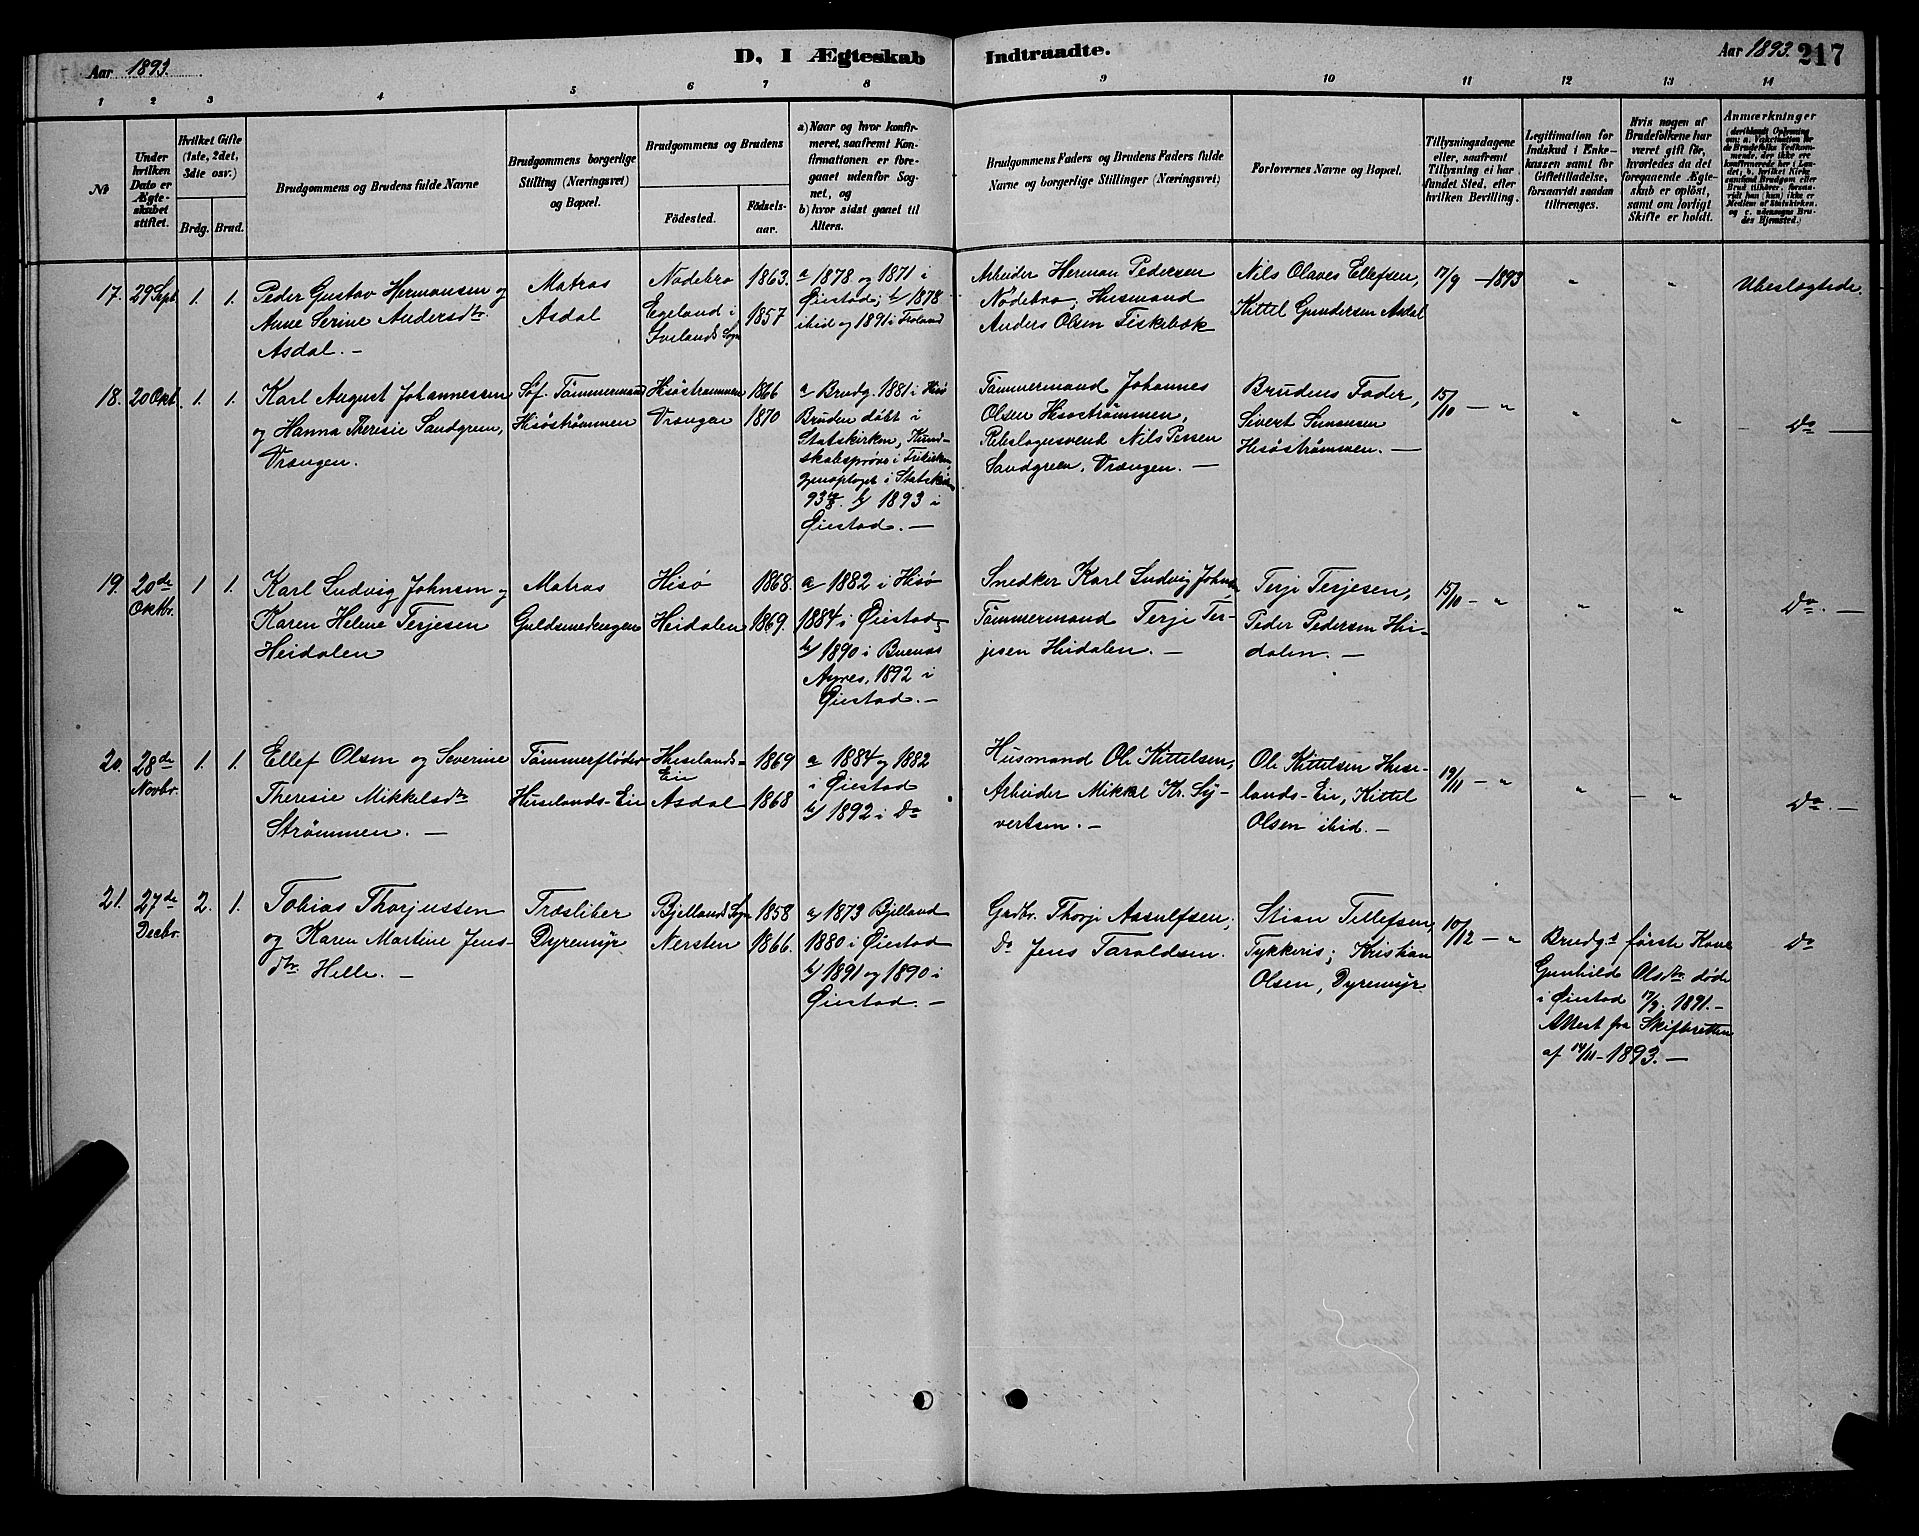 Aar 1893.
D, I Ægteskab Indtraadte.
Aar 1893. 217
1 2 3 4 5 6 7 8 9 10 11 12 13 14
No
Under hvilken Dato er Ægteskabet stiftet.
Hvilket Gifte (1ste, 2det, 3die osv.)
Brdg. Brud.
Brudgommens og Brudens fulde Navne
Brudgommens borgerlige Stilling (Næringsvei) og Bopæl.
Brudgommens og Brudens
Fødested.
Fødselsaar.
a) Naar og hvor konfirmeret, saafremt Konfirmationen er foregaaet udenfor Sognet, og
b) hvor sidst gaaet til Alters.
Brudgommens Faders og Brudens Faders fulde Navne og borgerlige Stillinger (Næringsvei)
Forlovernes Navne og Bopæl.
Tillysningsdagene eller, saafremt Tillysning ei har fundet Sted, efter hvilken Bevilling.
Legitimation for Indskud i Enkekassen samt for Giftetilladelse, forsaavidt saadan tiltrænges.
Hvis nogen af Brudefolkene har været gift før, hvorledes da det foregaaende Ægteskab er opløst, samt om lovligt Skifte er holdt.
Anmærkninger
17. 29 Sept. 1. 1.
Peder Gustav Hermansen og
Anne Serine Andersdtr
Asdal. —
Matros
Asdal
Nødebro 1863.
Egeland i 1857
Ivelands Sogn
a 1878 og 1871 i
Øiestad; b/ 1878
ibid og 1891 i Froland
Arbeider Herman Pedersen
Nødebro, Husmand
Anders Olsen Fiskebæk
Nils Olaves Ellefsen,
Kittel Gundersen Asdal
17/9 — 1893
" "
Ubeslægtede.
18. 20 Okt. 1. 1.
Karl August Johannessen
og Hanna Theresie Sandgren,
Vrængen.
Søf. Tømmermand
Hisøstrømmen
Hisøstrømmen 1866
Vrængen 1870
a Brudg. 1881 i Hisø
Bruden døbt i
Statskirken, Kundskabsprøve i Frikirken,
gjenoptaget i Statskirken
b/ 1893 i
Øiestad. —
Tømmermand Johannes
Olsen Hisøstrømmen,
Rebslagersvend Nils Persen
Sandgreen, Vrængen. —
Brudens Fader,
Sivert Simonsen
Hisøstrømmen. —
15/10 — "
" "
Do —
19. 20de Oktbr. 1. 1.
Karl Ludvig Johnsen og
Karen Helene Terjesen
Heidalen
Matros
Guldsmedengen
Hisø 1868.
Heidalen 1869.
a 1882 i Hisø
1884 i Øiestad;
b/ 1890 i Buenos
Ayres, 1892 i
Øiestad. —
Snedker Karl Ludvig Johnsen,
Tømmermand Terje Terjesen Heidalen. —
Terje Terjesen,
Peder Pedersen Heidalen. —
15/10 — "
" "
Do. —
20. 28de Novbr. 1. 1.
Ellef Olsen og Severine
Theresie Mikkelsdtr
Strømmen. —
Tømmerfløder
Huselands-Eie
Huselands-Eie 1869
Asdal 1868
a 1884 og 1882
i Øiestad
b/ 1892 i Do
Husmand Ole Kittelsen,
Arbeider Mikael Kr. Syvertsen. —
Ole Kittelsen Huselands-Eie, Kittel
Olsen ibid. —
19/11 — "
" — "
Do. —
21. 27de Decbr. 2. 1.
Tobias Thorjussen
og Karen Martine Jensdtr. Helle. —
Træsliber
Dyremyr
Bjellands Sogn 1858
Nersten 1866.
a/ 1873 Bjelland
1880 i Øiestad
b/ 1891 og 1890 i
Øiestad. —
Gadbr. Thorje Assulfsen,
Do Jens Taraldsen.
Stian Tellefsen,
Tykkeris; Kristian
Olsen, Dyremyr
10/12 — "
Brudg.s første Kone
Gunhilde Olsdtr døde
i Øiestad 17/9 1891. —
Attest fra Skifteretten
af 14/11 — 1893. —
Do